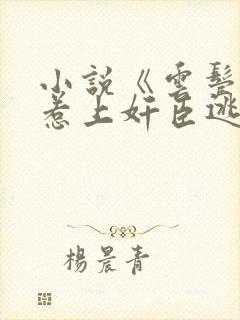 小説《雲鬓
惹上奸臣逃
楊晨青